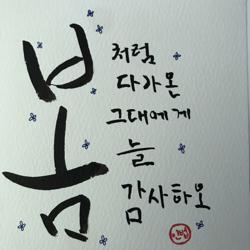 봄
처럼
다가온
그대에게
늘
감사하오